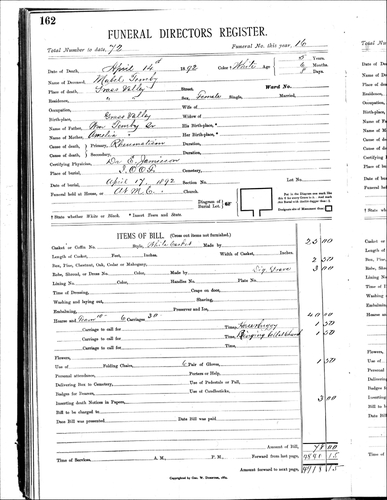 162
FUNERAL DIRECTORS REGISTER.
Total Number to date, 72 Funeral No. this year, 16
Date of Death, April 14th 1892 Color † White Age Years,
Months,
Name of Deceased, Mabel Temby Days.
Place of death, Grass Valley Street, Ward No.
Residence, Sex, Female Single, Married,
Occupation, Wife of
Birth-place, Grass Valley Widow of
Name of Father, Wm Temby Sr His Birth-place, *
Name of Mother, Amelia " Her Birth-place, *
Cause of death, Primary, Rheumatism Duration,
Cause of death, Secondary, Duration,
Certifying Physician, Dr E. Jamieson
Place of burial, I.O.O.F. Cemetery,
Date of burial, April 17 1892 Section No. Lot No.
Funeral held at House, or At M.E. Church.
Diagram of Burial Lot.
† State whether White or Black. * Insert Town and State.
ITEMS OF BILL. (Cross out items not furnished.)
Casket or Coffin No. Style, White Casket Made by 25 00
Length of Casket, Feet, Inches. Width of Casket, Inches.
Box, Pine, Chestnut, Oak, Cedar or Mahogany, 2 50
Robe, Shroud, or Dress No. Color, Made by Dig Grave 3 00
Lining No. Color, Handles No. Plate No.
Time of Dressing, Crape on door,
Washing and laying out, Shaving,
Embalming, Preserver and Ice,
Hearse and Team 10- 6 Carriages 30- 40 00
Carriage to call for Time, 1 50
Carriage to call for Time, 1 50
Carriage to call for Time,
Flowers,
Use of Folding Chairs, 6 Pair of Gloves, 1 50
Personal attendance, Porters or Help,
Delivering Box to Cemetery, Use of Pedestals or Pall,
Badges for Bearers, Use of Candlesticks,
Inserting death Notices in Papers, 3 00
Bill to be charged to
Date Bill was presented Date Bill was paid
Amount of Bill, 78 00
Time of Services, A. M., P. M. Forward from last page,
Amount forward to next page,